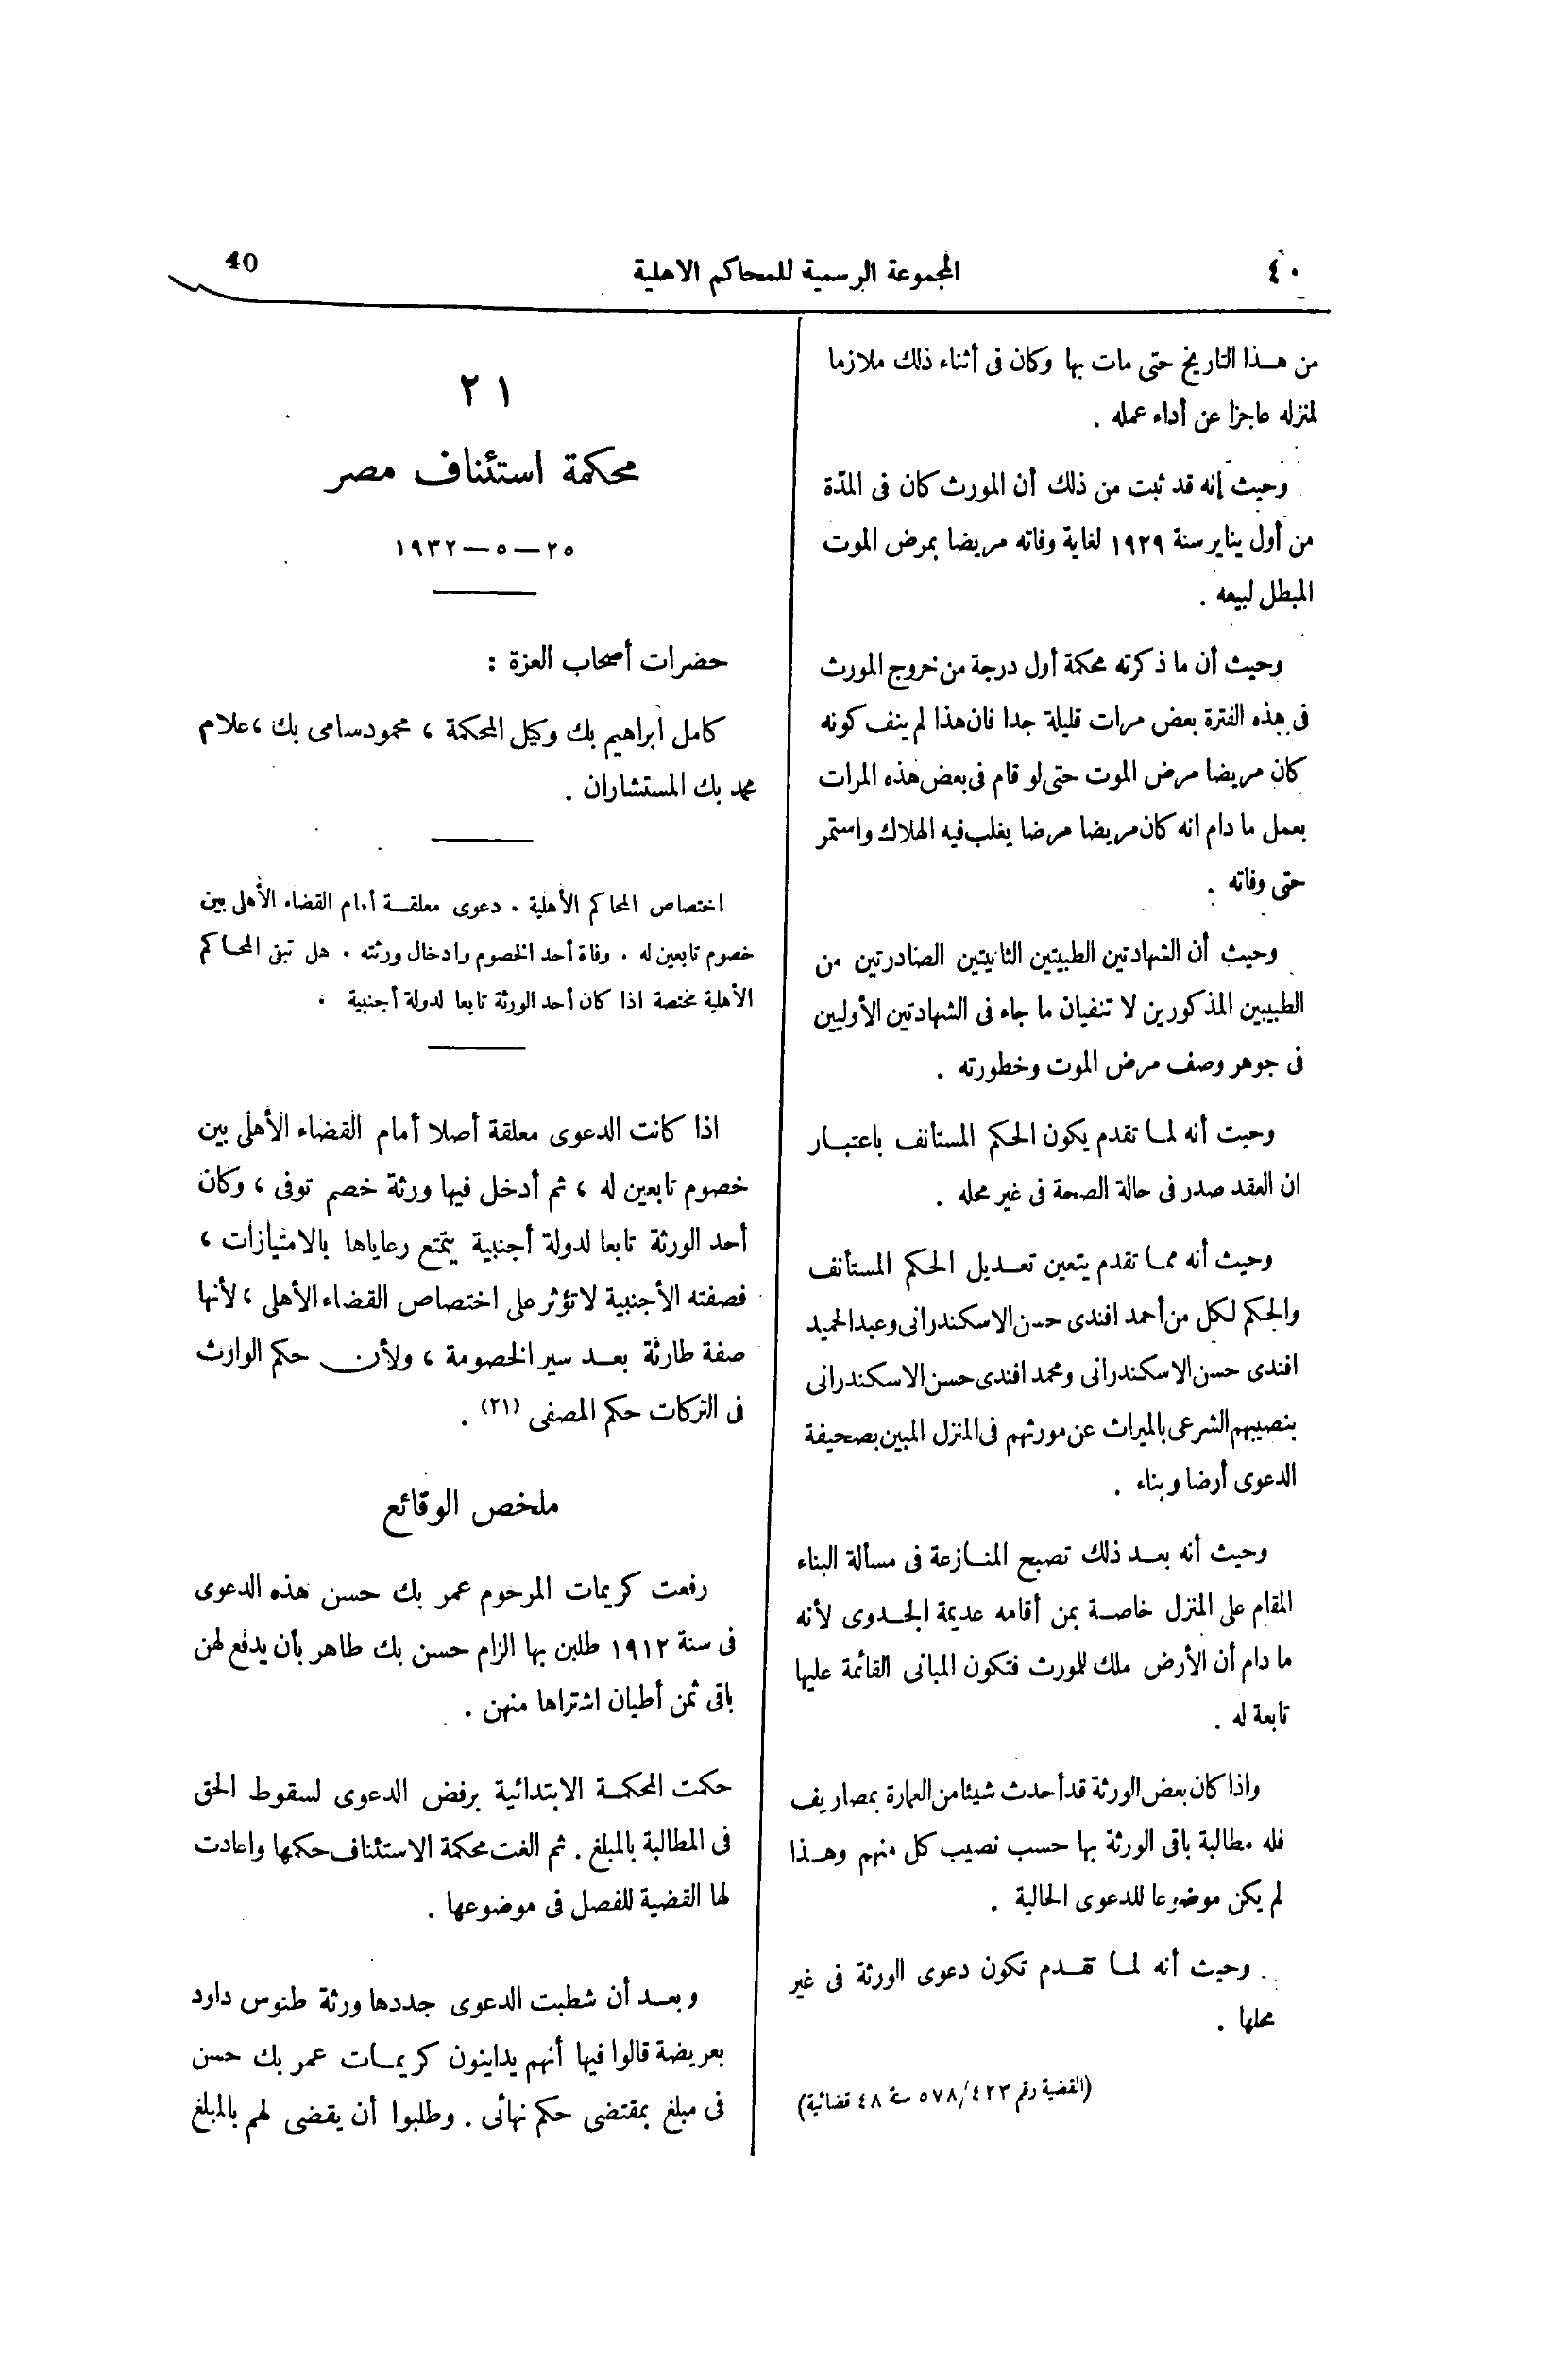 ٤٠
المجموعة الرسمية للمحاكم الاهلية
40
من هـذا التاريخ حتى مات بها وكان فى أثناء ذلك ملازما
لمنزله عاجزا عن أداء عمله .
وحيث إنه قد ثبت من ذلك أن المورث كان فى المدّة
من أول يناير سنة ١٩٢٩ لغاية وفاته مريضا بمرض الموت
المبطل لبيعه .
وحيث أن ما ذكرته محكمة أول درجة من خروج المورث
فى هذه الفترة بعض مرات قليلة جدا فان هذا لم ينف كونه
كان مريضا مرض الموت حتى لو قام فى بعض هذه المرات
بعمل ما دام انه كان مريضا مرضا يغلب فيه الهلاك واستمر
حتى وفاته .
وحيث أن الشهادتين الطبيتين الثانيتين الصادرتين من
الطبيبين المذكورين لا تنفيان ما جاء فى الشهادتين الأوليين
فى جوهر وصف مرض الموت وخطورته .
وحيث أنه لمـا تقدم يكون الحكم المستأنف باعتبـار
ان العقد صدر فى حالة الصحة فى غير محله .
وحيث أنه ممـا تقدم يتعين تعـديل الحكم المستأنف
والحكم لكل من أحمد افندى حسن الاسكندرانى وعبد الحميد
افندى حسن الاسكندرانى ومحمد افندى حسن الاسكندرانى
بنصيبهم الشرعى بالميراث عن مورثهم فى المنزل المبين بصحيفة
الدعوى أرضا وبناء .
وحيث أنه بعـد ذلك تصبح المنـازعة فى مسألة البناء
المقام على المنزل خاصـة بمن أقامه عديمة الجـدوى لأنه
ما دام أن الأرض ملك للورث فتكون المبانى القائمة عليها
تابعة له .
واذا كان بعض الورثة قد أحدث شيئا من العمارة بمصاريف
فله مطالبة باقى الورثة بها حسب نصيب كل منهم وهـذا
لم يكن موضوعا للدعوى الحالية .
وحيث أنه لمـا تقـدم تكون دعوى الورثة فى غير
محلها .
(القضية رقم ٤٢٣/٥٧٨ سنة ٤٨ قضائية)
٢١
محكمة استئناف مصر
٢٥ — ٥ — ١٩٣٢
حضرات أصحاب العزة :
كامل ابراهيم بك وكيل المحكمة ، محمود سامى بك ، علام
محمد بك المستشاران .
اختصاص المحاكم الأهلية . دعوى معلقـة أمام القضاء الأهلى بين
خصوم تابعين له . وفاة أحد الخصوم وادخال ورثته . هل تبقى المحـاكم
الأهلية مختصة اذا كان أحد الورثة تابعا لدولة أجنبية .
اذا كانت الدعوى معلقة أصلا أمام القضاء الأهلى بين
خصوم تابعين له ، ثم أدخل فيها ورثة خصم توفى ، وكان
أحد الورثة تابعا لدولة أجنبية يتمتع رعاياها بالامتيازات ،
فصفته الأجنبية لا تؤثر على اختصاص القضاء الأهلى ، لأنها
صفة طارئة بعـد سير الخصومة ، ولأن حكم الوارث
فى التركات حكم المصفى (٢١) .
ملخص الوقائع
رفعت كريمات المرحوم عمر بك حسن هذه الدعوى
فى سنة ١٩١٢ طلبن بها الزام حسن بك طاهر بأن يدفع لهن
باقى ثمن أطيان اشتراها منهن .
حكمت المحكمـة الابتدائية برفض الدعوى لسقوط الحق
فى المطالبة بالمبلغ . ثم الغت محكمة الاستئناف حكمها واعادت
لها القضية للفصل فى موضوعها .
وبعـد أن شطبت الدعوى جددها ورثة طنوس داود
بعريضة قالوا فيها أنهم يداينون كريمـات عمر بك حسن
فى مبلغ بمقتضى حكم نهائى . وطلبوا أن يقضى لهم بالمبلغ